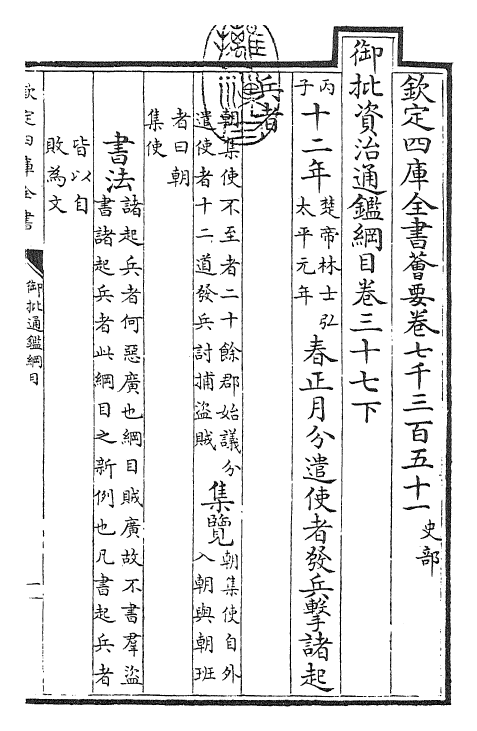 欽定四庫全書薈要卷七千三百五十一 史部
御批資治通鑑綱目卷三十七下
丙子 十二年 楚帝林士弘太平元年 春正月分遣使者發兵擊諸起
兵者
朝集使不至者二十餘郡始議分
遣使者十二道發兵討捕盜賊 集覽 朝集使自外入朝與朝班
者曰朝
集使
書法 諸起兵者何惡廣也綱目賊廣故不書羣盜
書諸起兵者此綱目之新例也凡書起兵者
皆以自
敗為文
欽定四庫全書
御批通鑑綱目
一